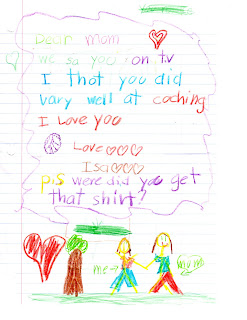 Dear Mom
we sa you on t.v
I that you did
vary well at coching
I love you
Love♡♡♡
Isa♡♡♡
p.s were did you get
that shirt?
me→
mum